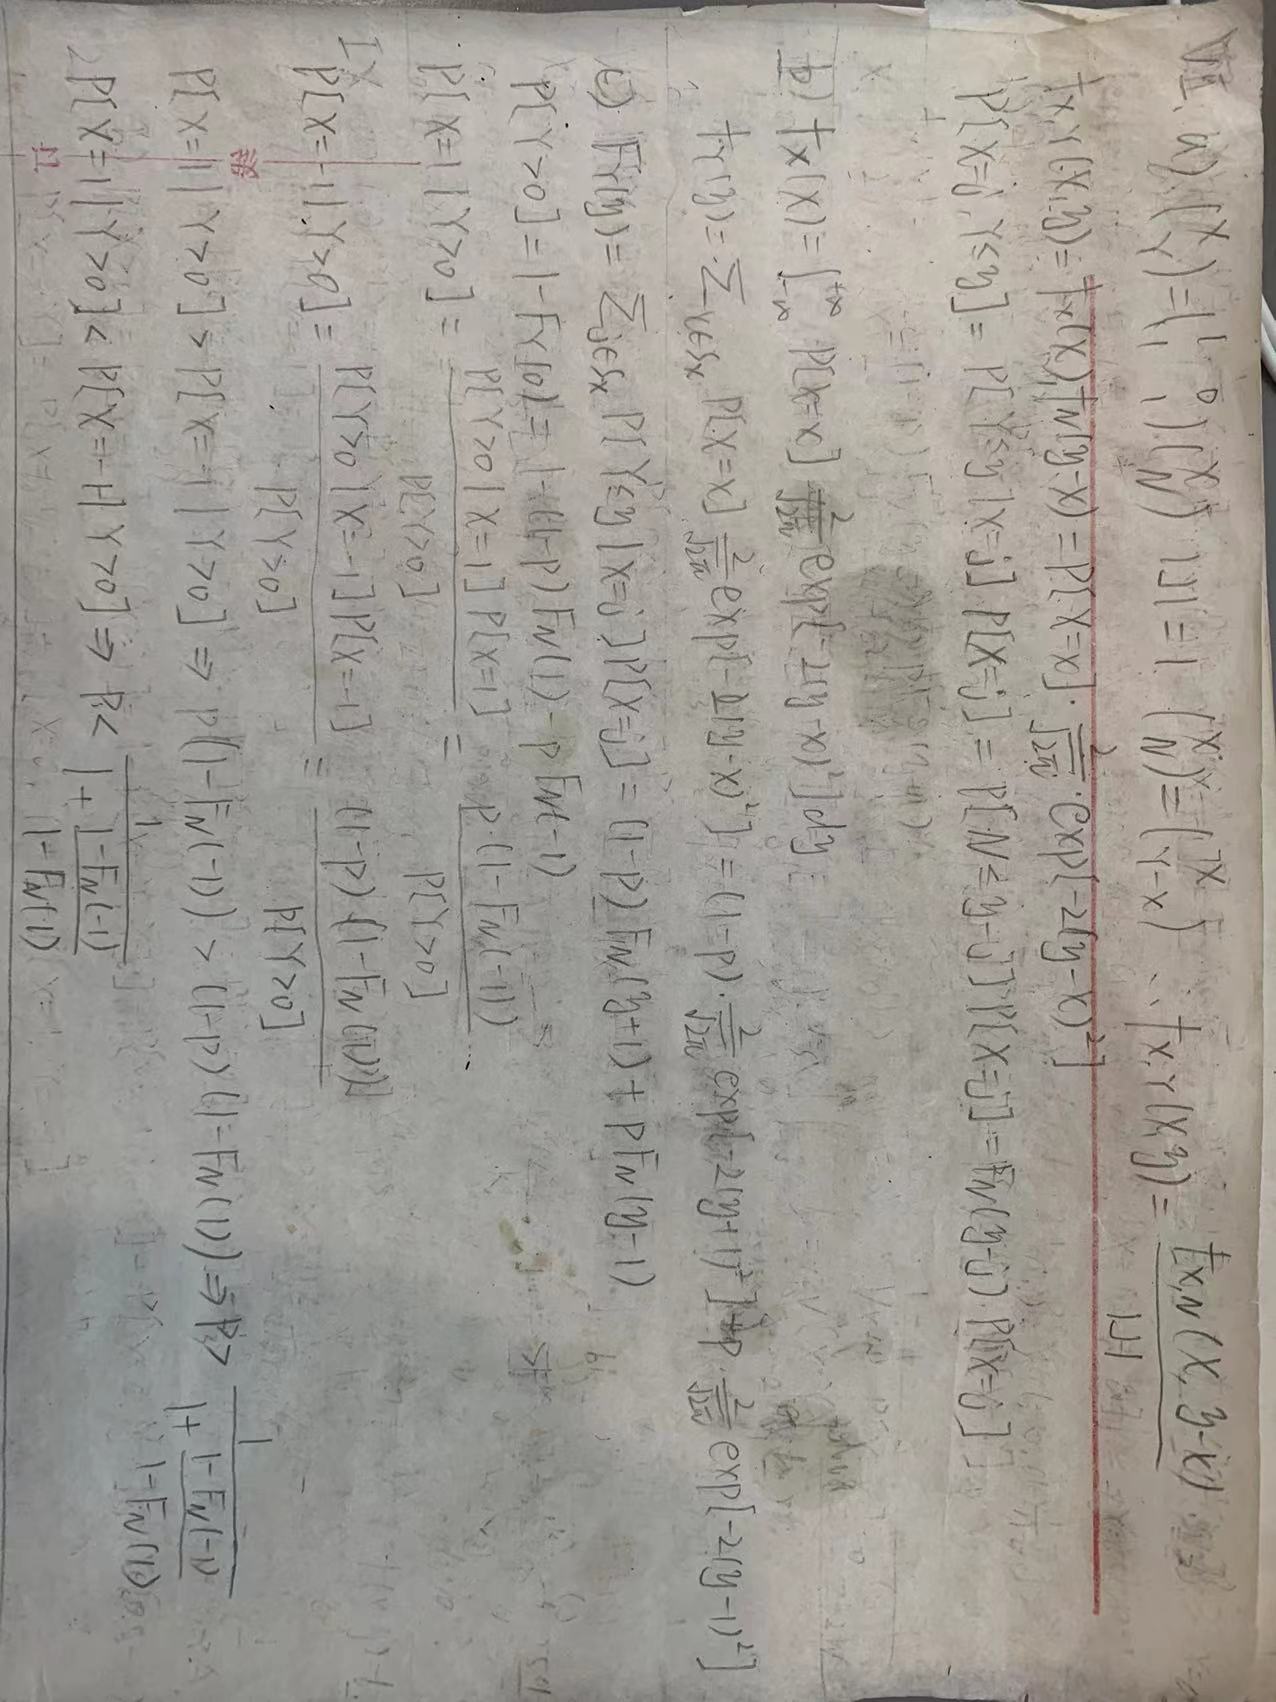 VII. a) (X Y) = (1 0 1 1)(X N) |J|=1. (X N) = (X Y-X) ∴ f_{X,Y}(x,y) = f_{X,N}(x, y-x) / |J|
f_{X,Y}(x,y) = f_X(x) f_N(y-x) = P[X=x] · 2/√2π · exp[-2(y-x)²]
P[X=j, Y≤y] = P[Y≤y | X=j] P[X=j] = P[N≤y-j] P[X=j] = F_N(y-j) · P[X=j]
b) f_X(x) = ∫_{-∞}^{+∞} P[X=x] 2/√2π exp[-2(y-x)²] dy
f_Y(y) = Σ_{x∈S_X} P[X=x] 2/√2π exp[-2(y-x)²] = (1-p) · 2/√2π exp[-2(y+1)²] + p · 2/√2π exp[-2(y-1)²]
c) F_Y(y) = Σ_{j∈S_X} P[Y≤y | X=j] P[X=j] = (1-p) F_N(y+1) + p F_N(y-1)
P[Y>0] = 1-F_Y(0) = 1-(1-p) F_N(1) - p F_N(-1)
P[X=1 | Y>0] = P[Y>0 | X=1] P[X=1] / P[Y>0] = p·(1-F_N(-1)) / P[Y>0]
IX
P[X=-1 | Y>0] = P[Y>0 | X=-1] P[X=-1] / P[Y>0] = (1-p) (1-F_N(1)) / P[Y>0]
P[X=1 | Y>0] > P[X=-1 | Y>0] ⇒ p(1-F_N(-1)) > (1-p) (1-F_N(1)) ⇒ p > 1 / (1 + (1-F_N(-1)) / (1-F_N(1)))
P[X=1 | Y>0] < P[X=-1 | Y>0] ⇒ p < 1 / (1 + (1-F_N(-1)) / (1-F_N(1)))